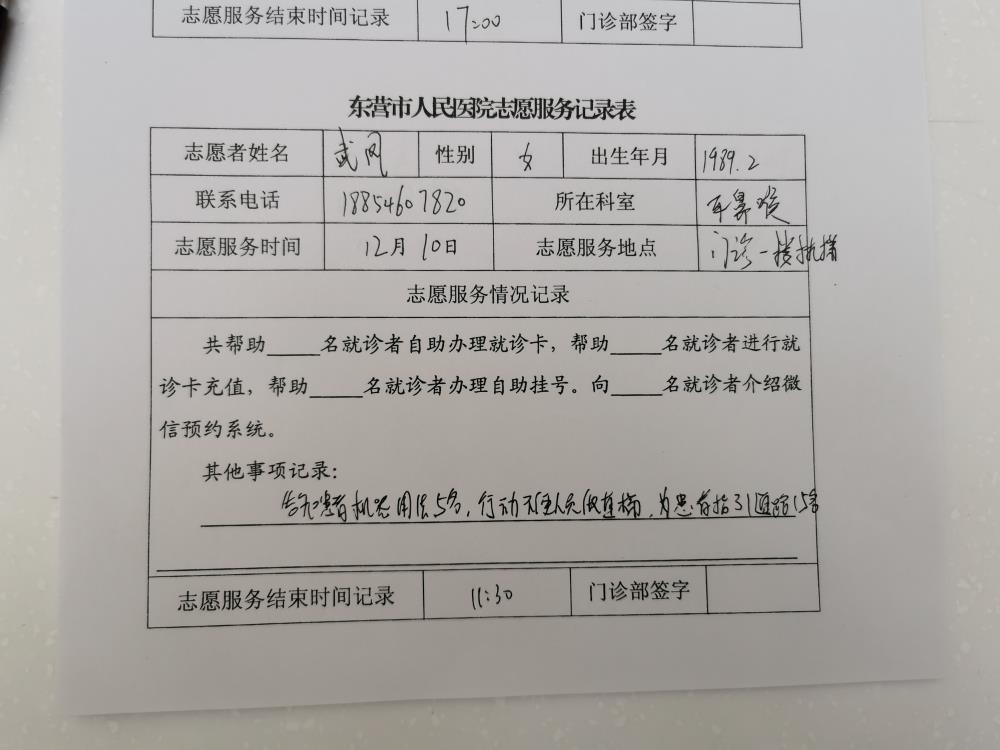 志愿服务结束时间记录 17:00 门诊部签字
东营市人民医院志愿服务记录表
志愿者姓名 武风 性别 女 出生年月 1989.2
联系电话 18854607820 所在科室 耳鼻喉
志愿服务时间 12月10日 志愿服务地点 门诊一楼扶梯
志愿服务情况记录
共帮助_____名就诊者自助办理就诊卡，帮助_____名就诊者进行就
诊卡充值，帮助_____名就诊者办理自助挂号。向_____名就诊者介绍微
信预约系统。
其他事项记录：
告知患者机器用法5名，行动不便人员做直梯，为患者指引道路15名
志愿服务结束时间记录 11:30 门诊部签字